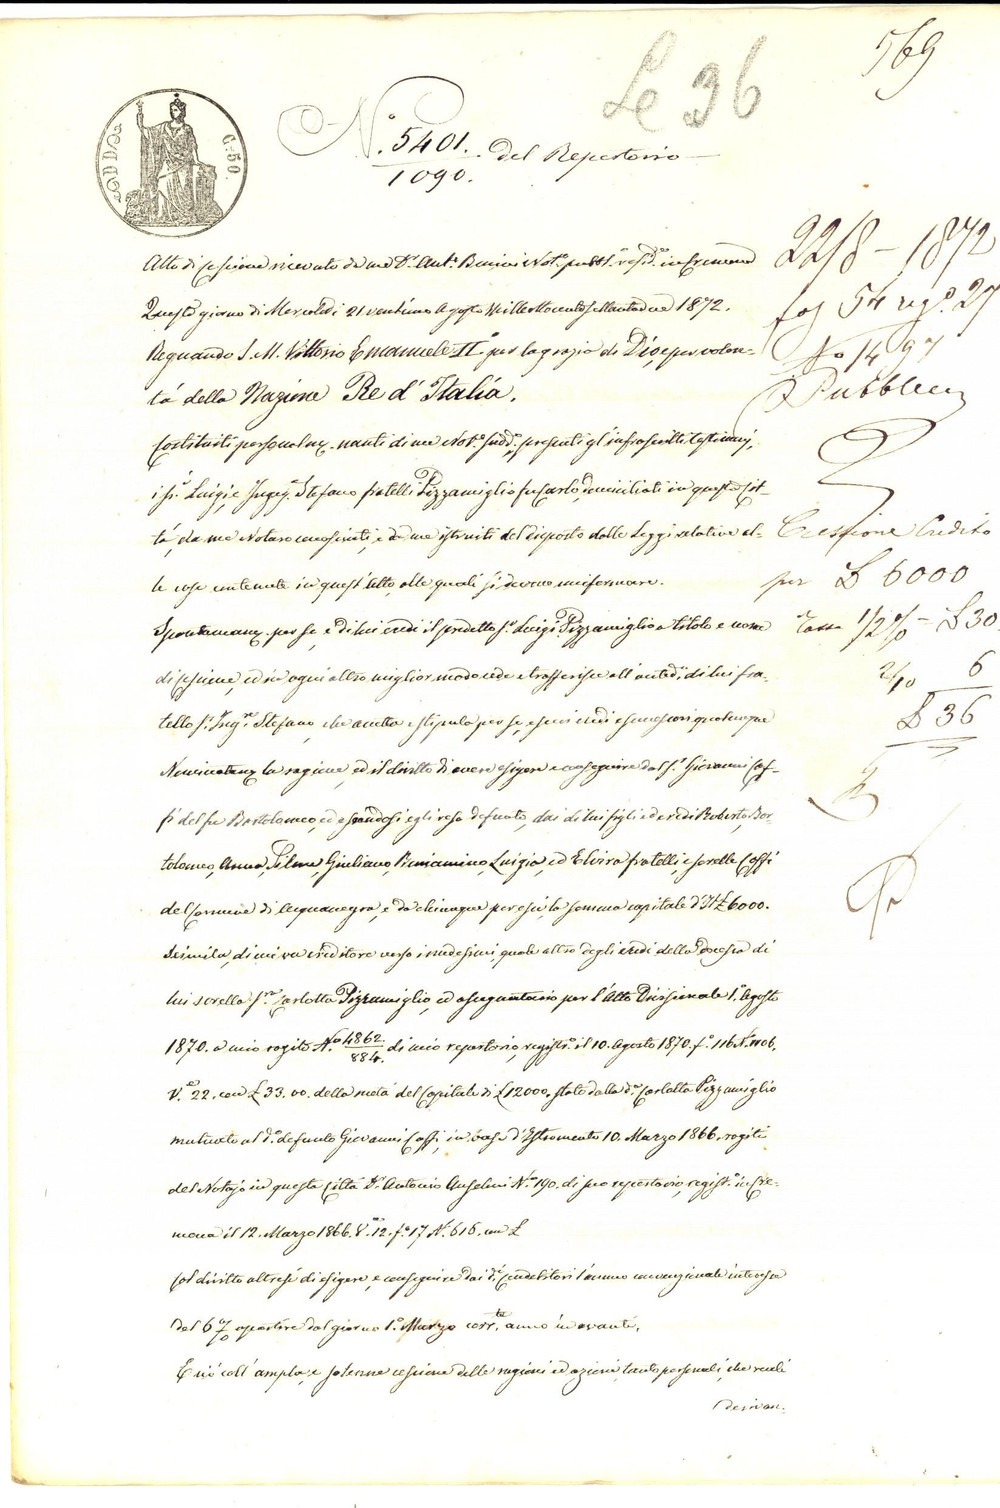 569
Le 36
C. 50.
N.° 5401./1090. del Repertorio
Atto di Cessione ricevuto da me D.r Ant.° Not.° pubb.° resid.e in Cremona
Questo giorno di Mercoledì 21 ventiuno Agosto Mille Ottocento Settantadue 1872.
Regnando S. M. Vittorio Emanuele II.° per la grazia di Dio, e per volon-
tà della Nazione Re d'Italia.
Costituiti personalm. nanti di me Not.° sudd.°, presenti gl'infrascritti testimonj,
i S.i Luigi, e Ingeg.e Stefano fratelli Pizzamiglio fu Carlo, domiciliati in questa Cit-
tà, da me Notaro conosciuti, e da me istruiti del disposto dalle Leggi relative al-
le cose contenute in quest'atto, alle quali si devono uniformare.
Spontaneam. per se, e di lui eredi il predetto S.r Luigi Pizzamiglio a titolo e nome
di cessione, ed in ogni altro miglior modo cede e trasferisce all'anted.° di lui fra-
tello S.r Ing.re Stefano, che accetta e stipula per se, e suoi eredi e successori qualunque
la ragione, ed il diritto di avere esigere e conseguire dal S.r Giovanni Caf-
fi del fu Bartolomeo, ed essendosi egli reso defunto, dai di lui figli ed eredi Roberto, Bor-
tolomeo, Anna, Giuliano, Beniamino, Luigia, ed Elvira fratelli, e sorelle Caffi
del Comune di Acquanegra, e da chiunque per essi, la somma capitale d'It.£ 6000.
Seimila, di cui va creditore verso i medesimi, quale altro degli eredi della decessa di
lui sorella S.ra Carlotta Pizzamiglio, ed assegnatario per l'Atto Divisionale 1.° Agosto
1870. a mio rogito N.° 4862./884. di mio repertorio, registr.° il 10. Agosto 1870. f.° 116 N.° 1106.
V.e 22. con £ 33.00. della metà del Capitale di £ 12000. stato dalla d.a Carlotta Pizzamiglio
mutuato al d.° defunto Giovanni Caffi, in base d'Istromento 10. Marzo 1866. rogiti
del Notajo in questa Città D.r Antonio Anselmi N.° 190. di suo repertorio, regist.° in Cre-
mona il 12. Marzo 1866. V.e 12. f.° 17 N.° 616. con £
Col diritto altresì di esigere, e conseguire dai d.i Condebitori l'annuo convenzionale interesse
del 6% a partire dal giorno 1.° Marzo corr.te anno in avanti.
E ciò coll'ampla, e solenne cessione delle ragioni ed azioni, tanto personali, che reali
derivan-
22/8 – 1872
fog 54 reg.° 27
N° 1497
Pubblici
Cessione Credito
per £ 6000
Tassa 1/2 % – £ 30
2/10 6
£ 36